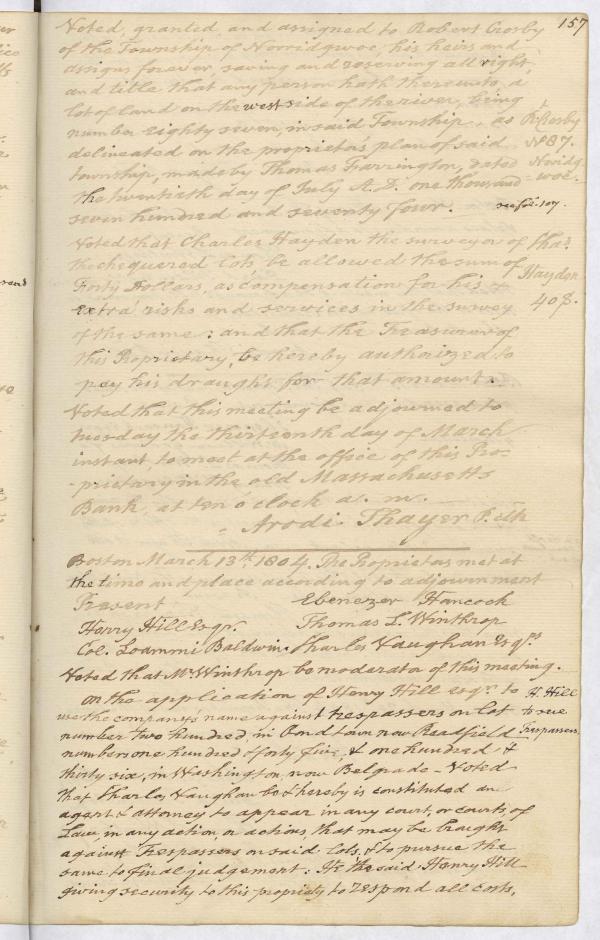 157
Voted, granted, and assigned to Robert Crosby
of the Township of Norridgwoc, his heirs and
assigns forever, saving and reserving all right,
and title that any person hath thereunto, a
lot of land on the west side of the river, being
number eighty seven, in said Township, as
delineated on the proprietors plan of said
township, made by Thomas Farrington, dated
the twentieth day of July A.D. one thousand
seven hundred and seventy four.
Rt Crosby
No 87.
Norridg-
woc.
see fol. 107.
Voted that Charles Hayden the surveyor of
the chequered lots, be allowed the sum of
Forty Dollars, as compensation for his
extra risks and services in the survey
of the same: and that the Treasurer of
this Propriertary, be hereby authorized to
pay his draughts for that amount.
Chas.
Hayden
40$.
Voted that this meeting be adjourned to
tuesday the thirteenth day of March
instant, to meet at the office of this Pro-
-prietary in the old Massachusetts
Bank, at ten o'clock a.m.
Arodi Thayer P. Clk
Boston March 13th 1804. The Proprietors met at
the time and place according to adjournment
Present
Ebenezer Hancock
Henry Hill Esqr.
Thomas L. Winthrop
Col. Loammi Baldwin.
Charles Vaughan Esqrs
Voted that Mr Winthrop be moderator of this meeting.
On the application of Henry Hill esqr. to
use the company's name against trespassers on lot
number two hundred, in Pond town now Readfield
numbers one hundred & forty five, & one hundred &
thirty six, in Washington, now Belgrade - Voted
that Charles Vaughan be & hereby is constituted an
agent & attorney to appear in any court, or courts of
Law, in any action, or actions, that may be braught
against Trespassers on said lots, & to pursue the
same to final judgement: He the said Henry Hill
giving security to this propriety to respond all costs,
H. Hill
to sue
Trespassers